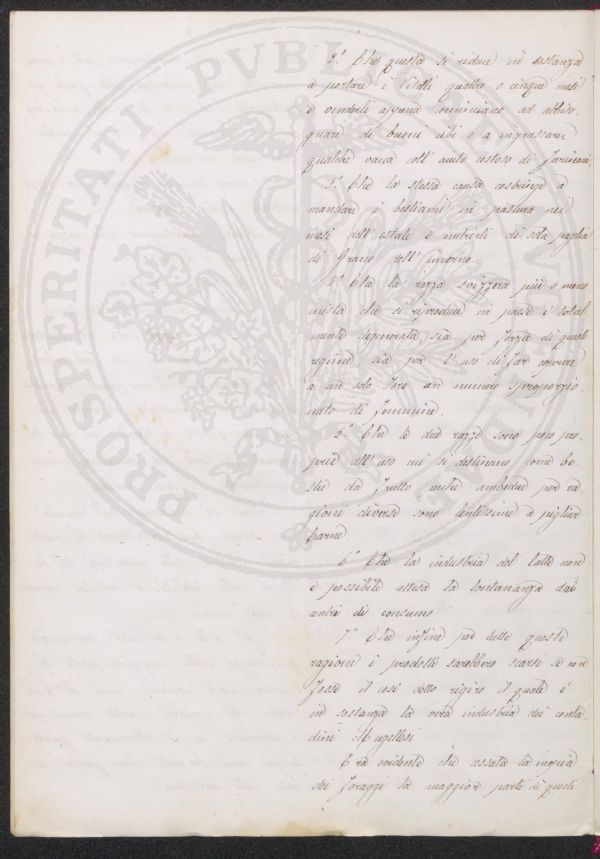 2.° Che questa si riduce in sostanza
a portare i Vitelli quattro o cinque mesi
e venderli appena cominciano ad abbiso-
gnare di buoni cibi o a ingrassare
qualche vacca coll' aiuto costoso di farinacei
3.° Che la stessa causa costringe a
mandare i bestiami in pastura nei
mesi dell' estate e nutrirli di sola paglia
di Grano dell' inverno.
4.° Che la razza svizzera più o meno
mista che si riproduce in paese è total
mente degenerata sia per forza di questo
regime, sia per l' uso di far coprire
a un solo Toro un numero sproporzio
nato di femmine.
5.° Che le due razze sono poco pro-
prie all' uso cui si destinano come be
stie da frutto anche ambedue per ra
gioni diverse sono lentissime a pigliar
carne.
6.° Che la industria del latte non
è possibile attesa la lontananza dai
centri di consumo
7.° Che infine per tutte queste
ragioni i prodotti sarebbero scarsi se non
fosse il così detto rigiro il quale è
in sostanza la vera industria dei conta
dini Mugellesi
Era evidente che cessata la inopia
dei foraggi la maggior parte di questi
PROSPERITATI PUBLICAE